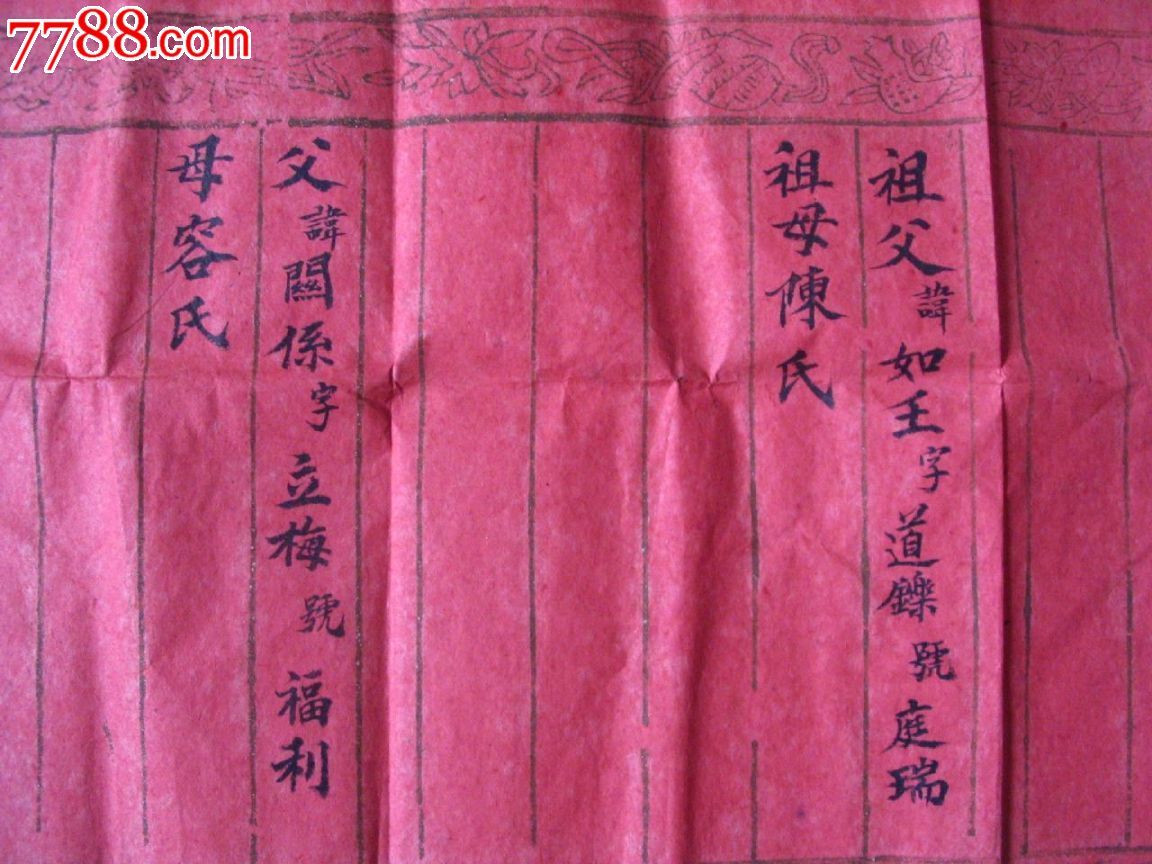 7788.com
祖父諱如王字道鑠號庭瑞
祖母陳氏
父諱關係字立梅號福利
母容氏